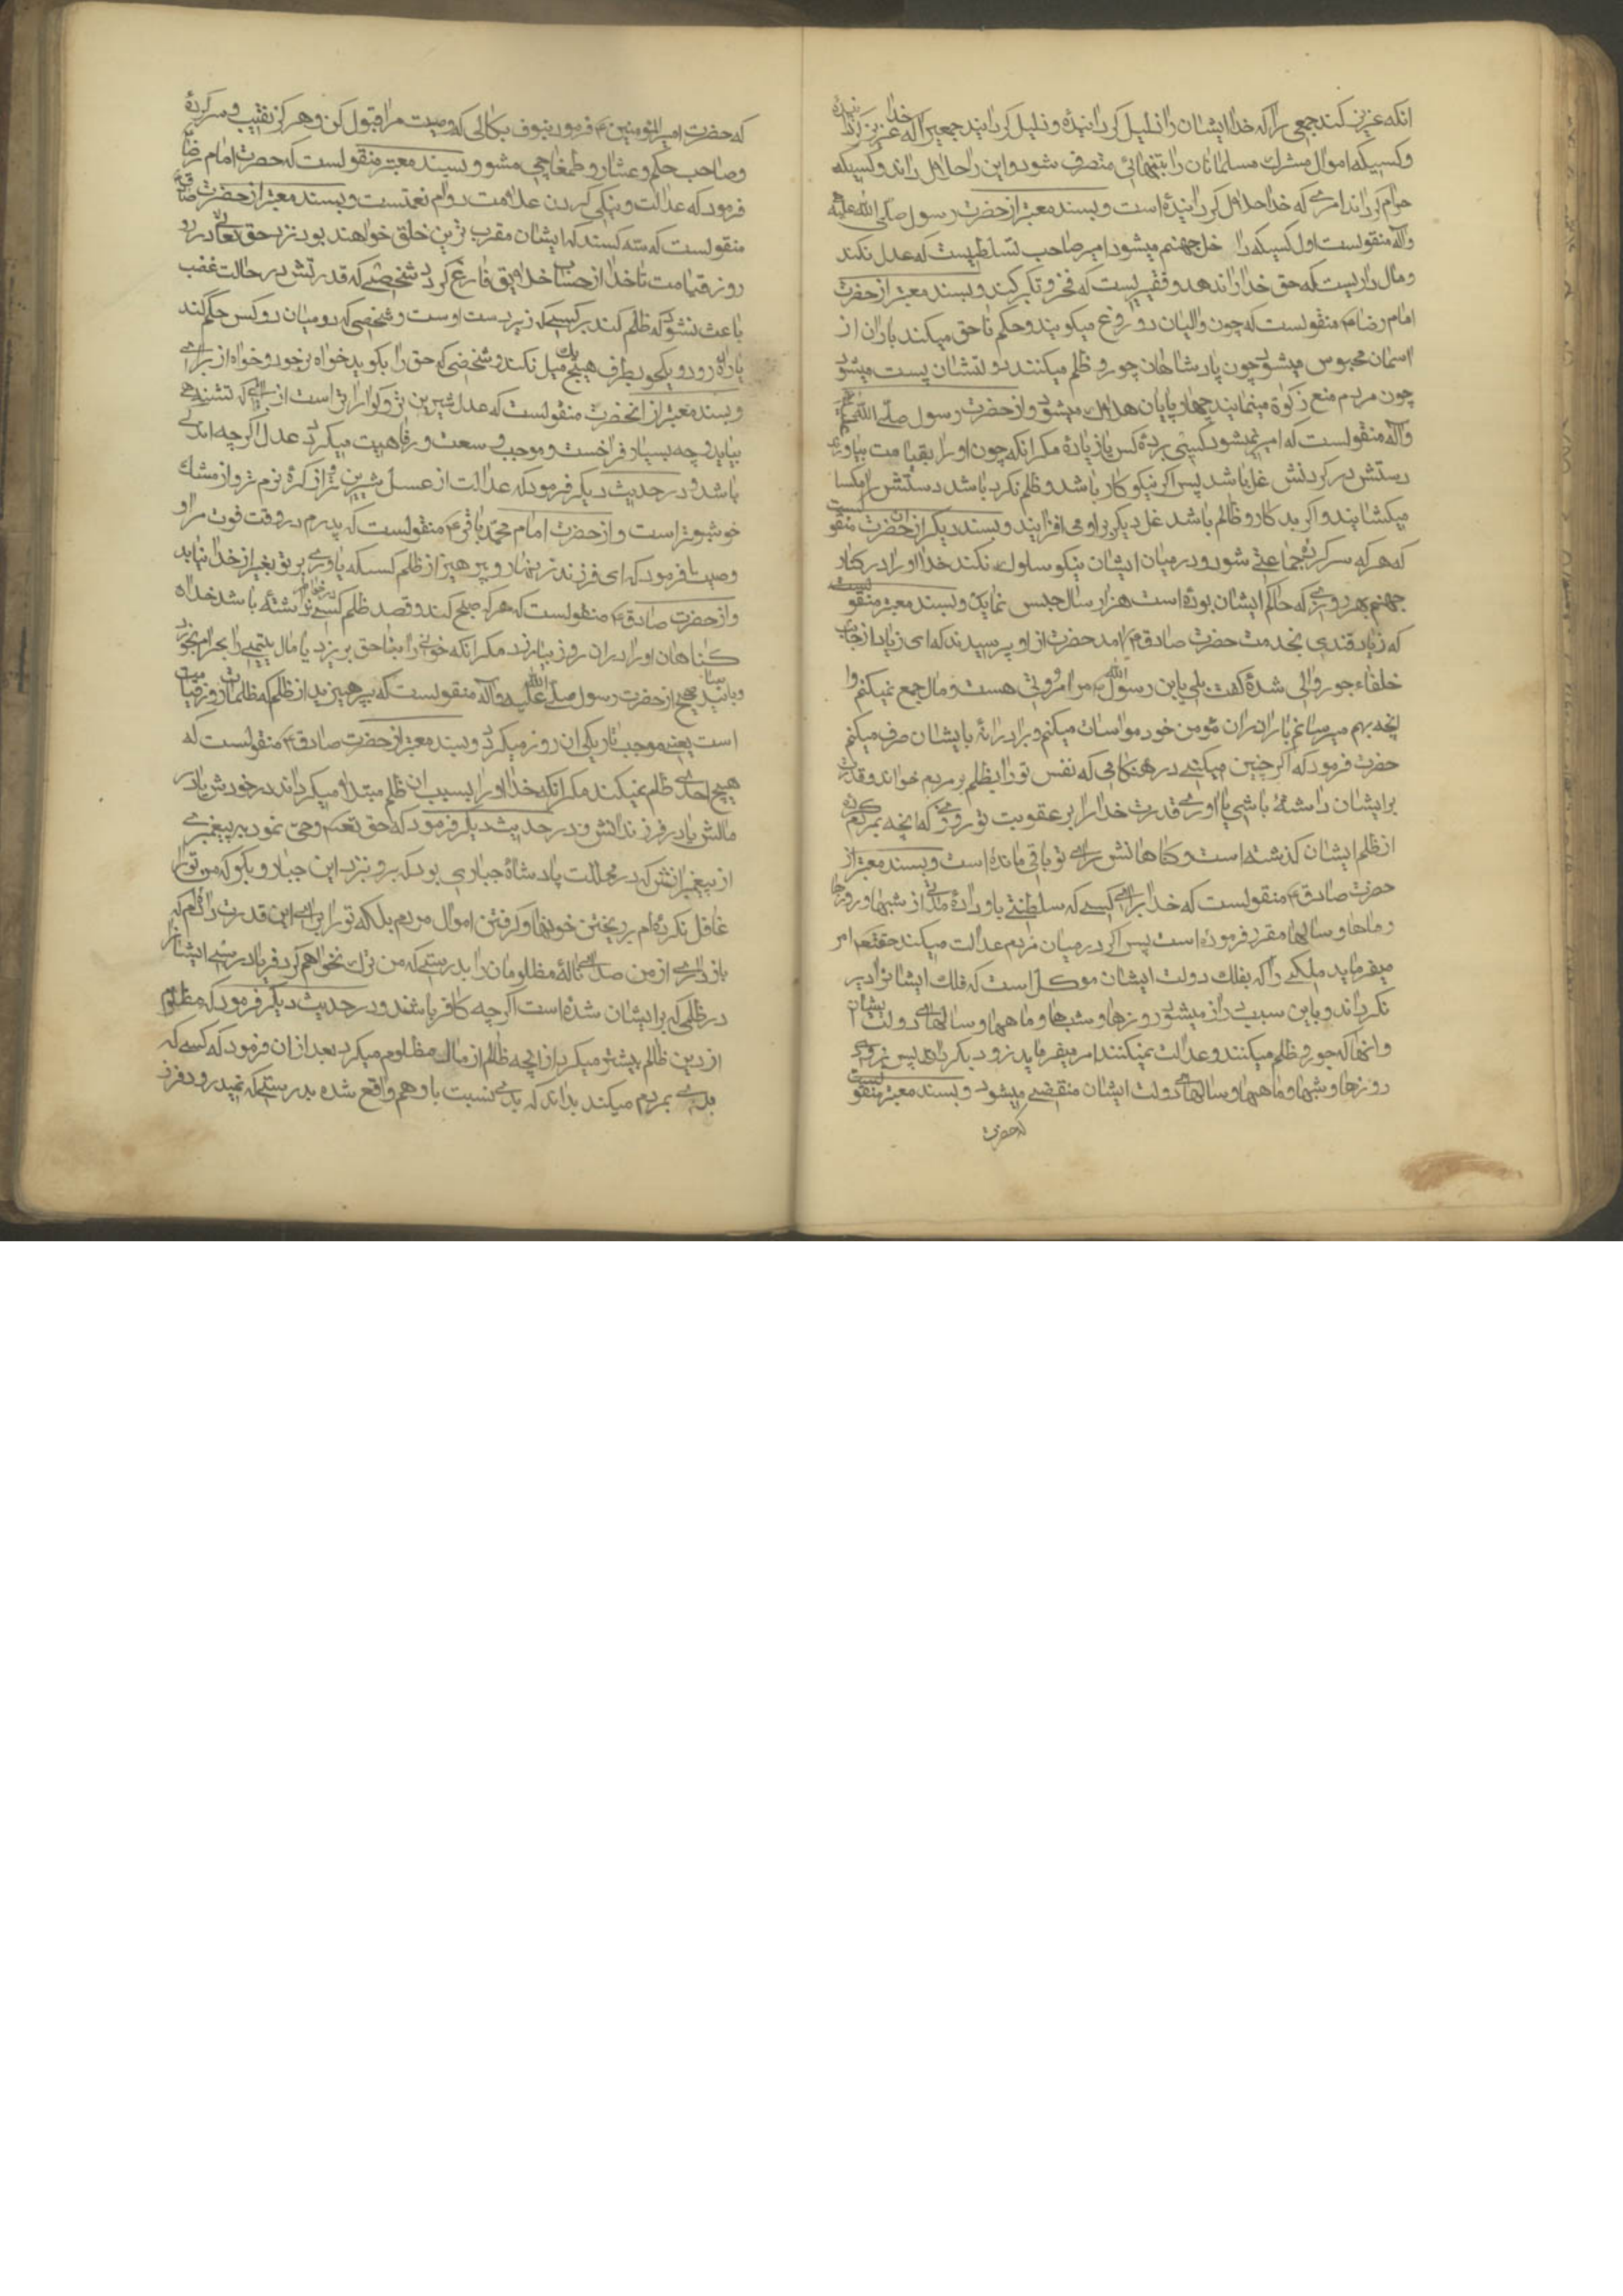 انکه عزیز کند جمعی را که خدا ایشان را ذلیل کردانیده و ذلیل کرداند جمعیرا که خدا عزیز کردانیده
و کسیکه اموال مشترك مسلمانان را بتنهائی متصرف شود و این را حلال داند و کسیکه
حرام کرداند امری که خدا حلال کردانیده است و بسند معتبر از حضرت رسول صلی الله علیه
و اله منقولست اول کسیکه داخل جهنم میشود امیر صاحب تسلطیست که عدل نکند
و مال داریست که حق خدا را ندهد و فقیریست که فخر و تکبر کند و بسند معتبر از حضرت
امام رضا ع منقولست که چون والیان دروغ میکویند و حکم ناحق میکنند باران از
اسمان محبوس میشود چون پادشاهان جور و ظلم میکنند دولتشان پست میشود
چون مردم منع زکوة مینمایند چهارپایان هلاك میشود و از حضرت رسول صلی الله علیه
و اله منقولست که امیر نمیشود کسی بر ده کس یا زیاده مکر انکه چون او را بقیامت بیاورند
دستش در کردنش غل باشد پس اکر نیکو کار باشد و ظلم نکرده باشد دستش را
میکشایند و اکر بدکار و ظالم باشد غل دیکر بر او می افزایند و بسند دیکر از ان حضرت منقولست
که هر که سرکرده جماعتی شود و در میان ایشان نیکو سلوك نکند خدا او را در کنار
جهنم بهر روزی که حاکم ایشان بوده است هزار سال حبس نماید و بسند معتبر منقولست
که زیاد قندی بخدمت حضرت صادق ع امد حضرت از او پرسیدند که ای زیاد از جانب
خلفاء جور والی شدهٔ کفت بلی یابن رسول الله ص مرا مروتی هست و مال جمع نمیکنم و
انچه بهم میرسانم با برادران مؤمن خود مواسات میکنم و برادرانه با ایشان صرف میکنم
حضرت فرمود که اکر چنین میکنی در هنکامی که نفس تو را بظلم بر مردم خواند و قدرت
بر ایشان داشته باشی یاد اور قدرت خدا را بر عقوبت تو روزی که انچه بمردم کرده
از ظلم ایشان کذشته است و کناهانش برای تو باقی مانده است و بسند معتبر از
حضرت صادق ع منقولست که خدا برای کسی که سلطنتی باو داده مدتی از شبها و روزها
و ماهها و سالها مقرر فرموده است پس اکر در میان مردم عدالت میکند حقتعم امر
میفرماید ملکی را که بفلك دولت ایشان موکل است که فلك ایشانرا دیر
بکرداند و باین سبب دراز میشود روزها و شبها و ماهها و سالهای دولت ایشان
و انها که جور و ظلم میکنند و عدالت نمیکنند امر میفرماید زود بکرداند پس بزودی
روزها و شبها و ماهها و سالهای دولت ایشان منقضی میشود و بسند معتبر منقولست
که حضرت
که حضرت امیر المؤمنین ع فرمود بنوف بکالی که وصیت مرا قبول کن و هرکز نقیب و سرکرده
و صاحب حکم و عشار و طمغاچی مشو و بسند معتبر منقولست که حضرت امام رضا
فرمود که عدالت و نیکی کردن علامت دوام نعمتست و بسند معتبر از حضرت صادق
منقولست که سه کسند که ایشان مقرب ترین خلق خواهند بود نزد حق تعالی در
روز قیامت تا خدا از حساب خلایق فارغ کردد شخصی که قدرتش در حالت غضب
باعث نشود که ظلم کند بر کسی که زیردست اوست و شخصی که در میان دو کس حکم کند
یا راه رود و یکجو بطرف هیچ یك میل نکند و شخصی که حق را بکوید خواه بر خود و خواه از برای
و بسند معتبر از انحضرت منقولست که عدل شیرین تر و کواراتر است از ابی که تشنه
بیابد و چه بسیار فراخست و موجب وسعت و رفاهیت میکردد عدل اکر چه اندکی
باشد و در حدیث دیکر فرمود که عدالت از عسل شیرین تر و از کره نرم تر و از مشك
خوشبوتر است و از حضرت امام محمد باقر ع منقولست که پدرم در وقت فوت مرا
وصیت فرمود که ای فرزند زنهار و پرهیز از ظلم کسیکه یاوری بر تو بغیر از خدا نیابد
و از حضرت صادق ع منقولست که هر که صبح کند و قصد ظلم کسی در خاطر نداشته باشد خداوند
کناهان او را در ان روز بیامرزد مکر انکه خونی را بناحق بریزد یا مال یتیمی را بحرام بخورد
و باسانید صحیح از حضرت رسول صلی الله علیه و اله منقولست که بپرهیزید از ظلم که ظلمات روز قیامت
است یعنی موجب تاریکی ان روز میکردد و بسند معتبر از حضرت صادق ع منقولست که
هیچ احدی ظلم نمیکند مکر انکه خدا او را بسبب ان ظلم مبتلا میکرداند در خودش یا در
مالش یا در فرزندانش و در حدیث دیکر فرمود که حق تعم وحی نمود به پیغمبری
از پیغمبرانش که در مملکت پادشاه جباری بود که برو نزد این جبار و بکو که من تو را
غافل نکرده ام بریختن خونها و کرفتن اموال مردم بلکه تو را برای این قدرت داده ام که
بازداری از من صدای ناله مظلومان را بدرستی که من ترك نخواهم کرد فریادرسی ایشانرا
در ظلمی که بر ایشان شده است اکر چه کافر باشند و در حدیث دیکر فرمود که مظلوم
از دین ظالم بیشتر میکیرد از انچه ظالم از مال مظلوم میکیرد بعد از ان فرمود که کسی که
بدی بمردم میکند بداند که بدی نسبت باو هم واقع شده بدرستی که نمیدرود فرزند